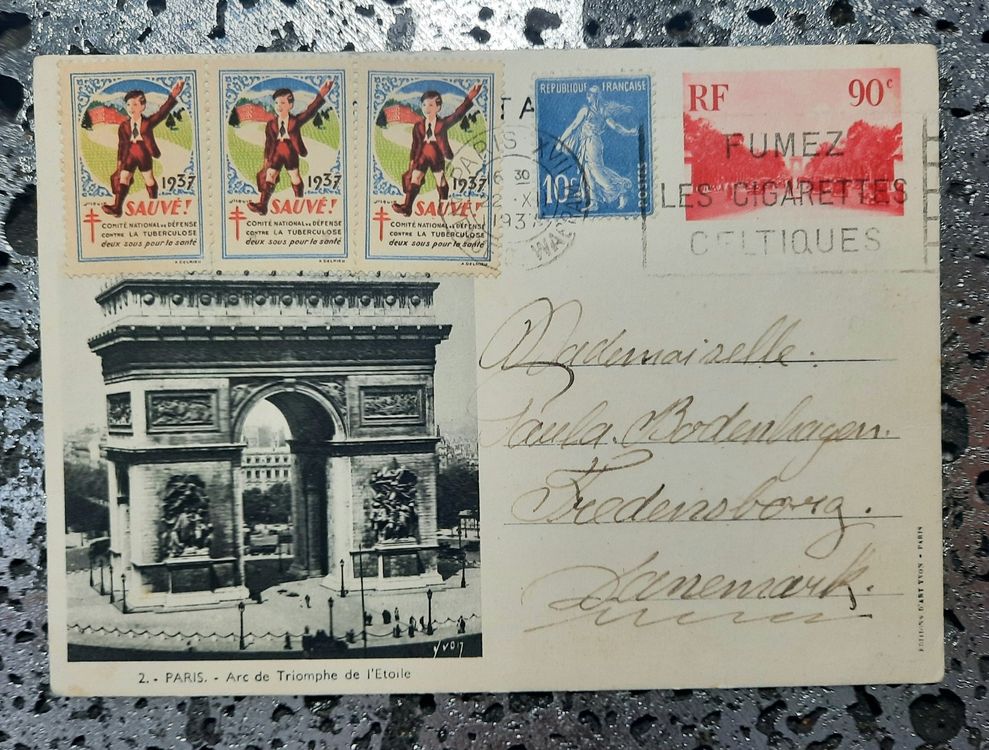 1937
SAUVÉ!
COMITÉ NATIONAL DE DÉFENSE
CONTRE LA TUBERCULOSE
deux sous pour la santé
A. DELRIEU
1937
SAUVÉ!
COMITÉ NATIONAL DE DÉFENSE
CONTRE LA TUBERCULOSE
deux sous pour la santé
A. DELRIEU
1937
SAUVÉ!
COMITÉ NATIONAL DE DÉFENSE
CONTRE LA TUBERCULOSE
deux sous pour la santé
A. DELRIEU
TA
RÉPUBLIQUE FRANÇAISE
10c
POSTES
PARIS XVII
30
XII
1937
RF 90c
FUMEZ
LES CIGARETTES
CELTIQUES
Mademoiselle.
Paula. Bodenhagen.
Fredensborg.
Danemark.
Yvon
2. - PARIS. - Arc de Triomphe de l'Etoile
EDITIONS D'ART YVON • PARIS